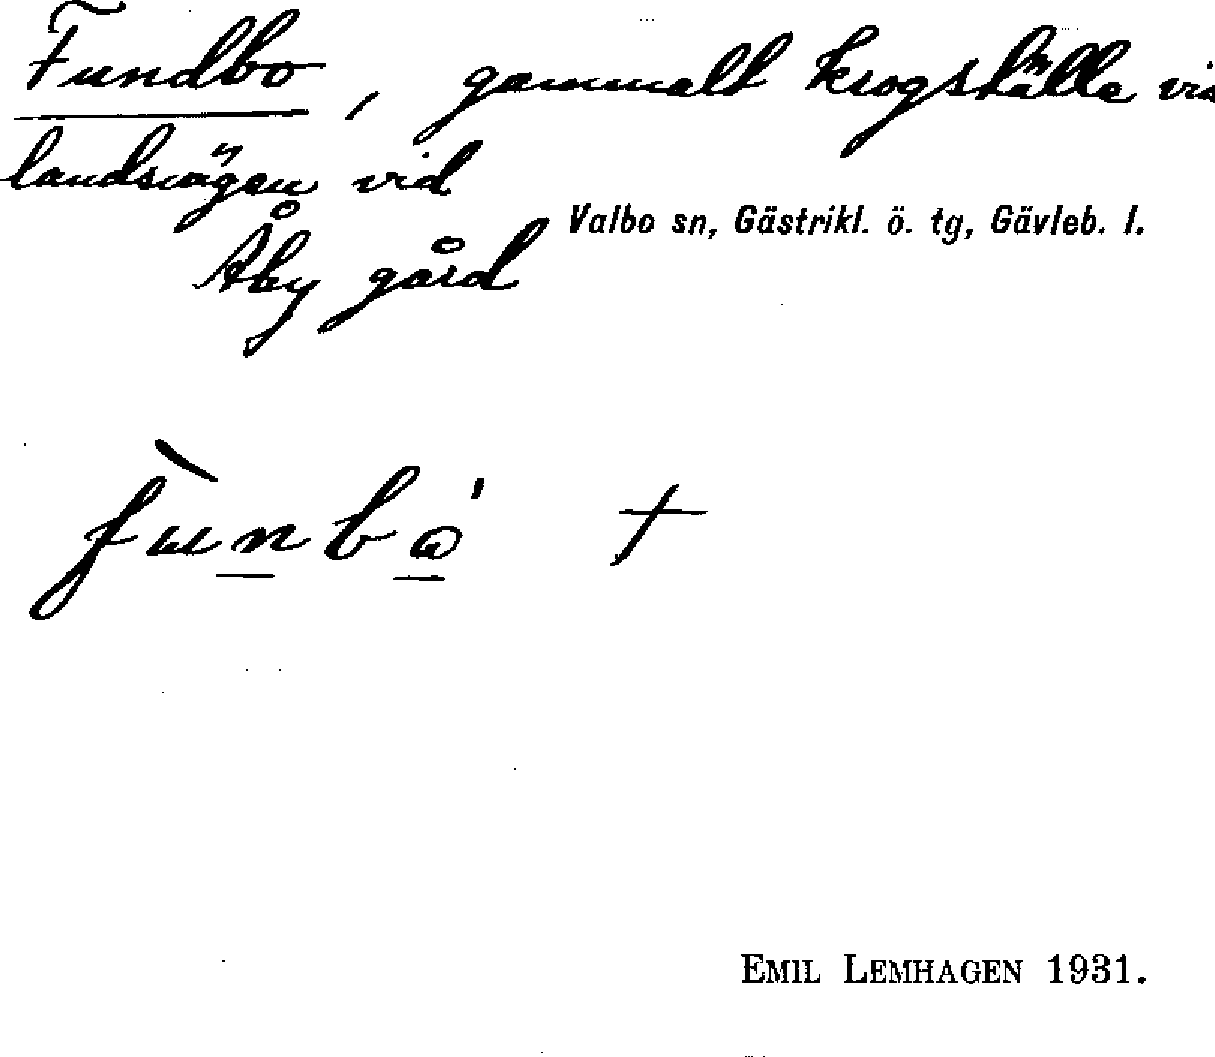 Fundbo, gammalt krogställe vid
landsvägen vid
Valbo sn, Gästrikl. ö. tg, Gävleb. l.
Åby gård
fùnbω' †
EMIL LEMHAGEN 1931.